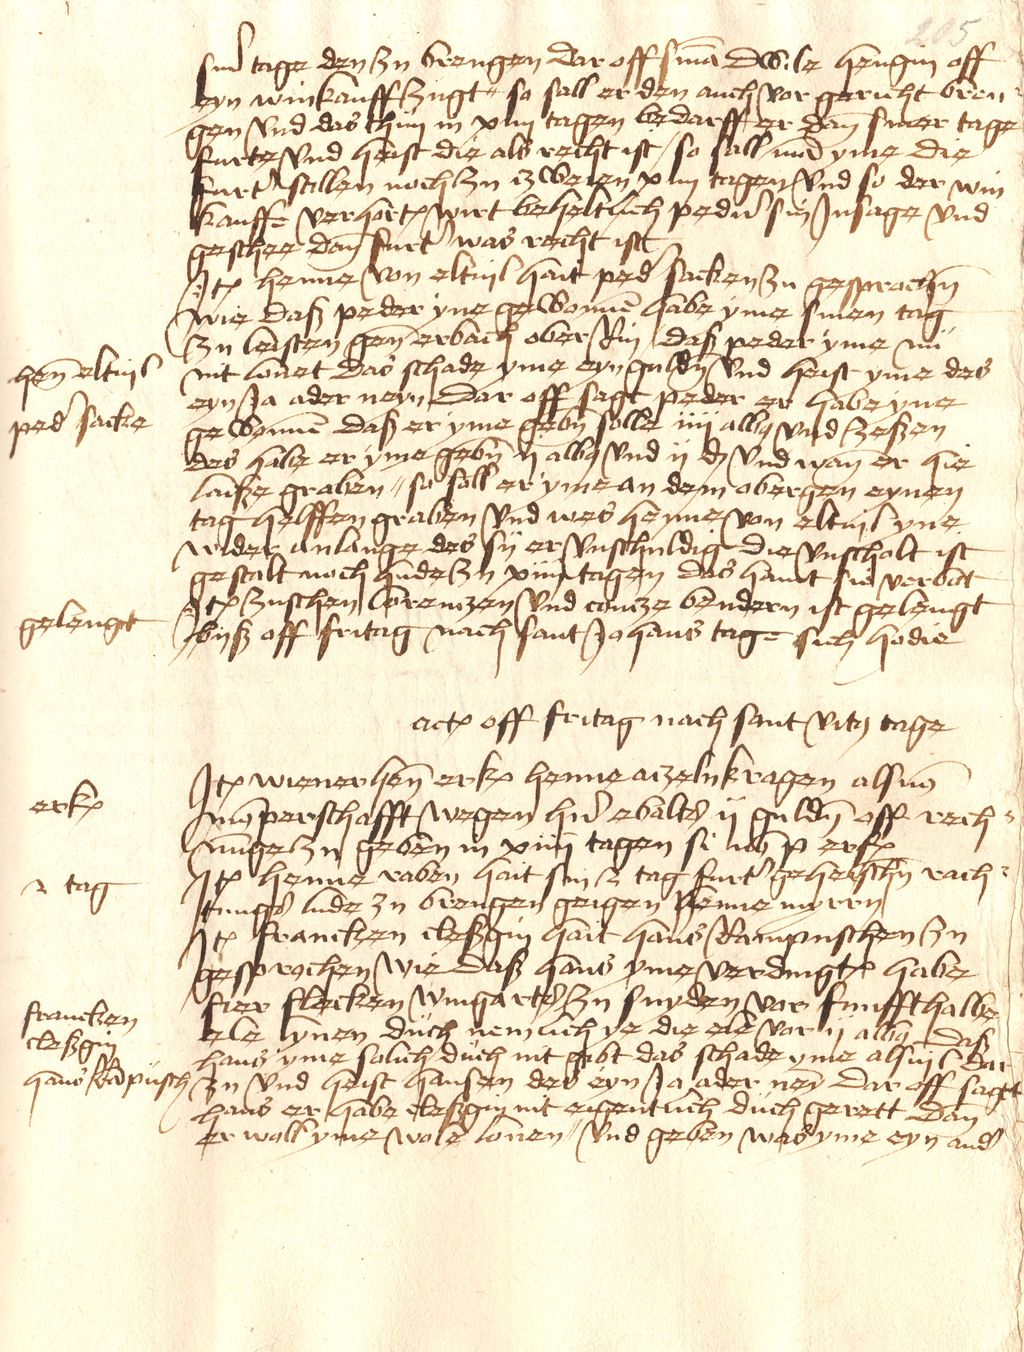 205
sine tage den zu brengen dar off sinā dwile hengin off
eyn winkauff zugt so sall er den auch vor gericht bren
gen vnd das thun in xiiij tagen bedarff er dan̄ siner tage
furte vnd heist die als recht ist so sall mā yme die
furt stillen noch zu zweien xiiij tagen vnd so der win
kauff verhort wirt beheltlich peder sin Insage vnd
geschee dan̄ furt was recht ist
Itē henne von eltuil hait pedˀ sacken zu gesprochn̄
wie daß peder yne gewonnē habe yme sinen tag
zu leisten gen̄ erbach ober Rin daß peder yme nu
nit lonet das schade yme eyn guldn̄ vnd heist yme des
eyn Ja ader neyn Dar off sagt peder er habe yne
gewonnē daß er yme gebn̄ solle iiij albꝯ vnd zeßen
des habe er yme gebn̄ ij albꝯ vnd ij d vnd wan̄ er hie
laisze graben so soll er yme an dem obergen eynen
tag helffen graben vnd wes henne von eltuil yne
wider anlange des sij er vnschuldig die vnscholt ist
gestalt noch hude zu xiiij tagen das hait sie verbot
Itē zuschen lorentzen vnd contze bendern ist gelengt
biß off fritag nach sant Johans tage sich hodie
hen̄ eltuil
pedˀ sacke
gelengt
actē off fritag nach sant vitꝯ tage
Itē wienerhen̄ erkē henne aczelnkragen als vō
mōperschafft wegen hˀ ebalts ij guldn̄ off rech
nunge zu geben in xiiij tagen si nō p erkē
Itē henne raben hait sin 2 tag furt geheischn̄ rach
tungs lude zu brengen geigen henne myrrn
Itē francken cleßgin hait hans Rampuschen zu
gesprochen wie daß hans yme verdingt habe
fier flecken wingarts zu snyden vor funffthalbe
ele lynen duch nemlich ye die ele vor ij albꝯ Daß
hans yme solich duch nit gebt das schade yme alsuil Dar
zu vnd heist hansen des eyn Ja ader neȳ Dar off sagt
hans er habe cleßgin nit eigentlich duch gerett Dan
er woll yme wole lonen vnd geben was yme eyn andˀ
erkē
2 tag
francken
cleßgin
hans Rāpusch